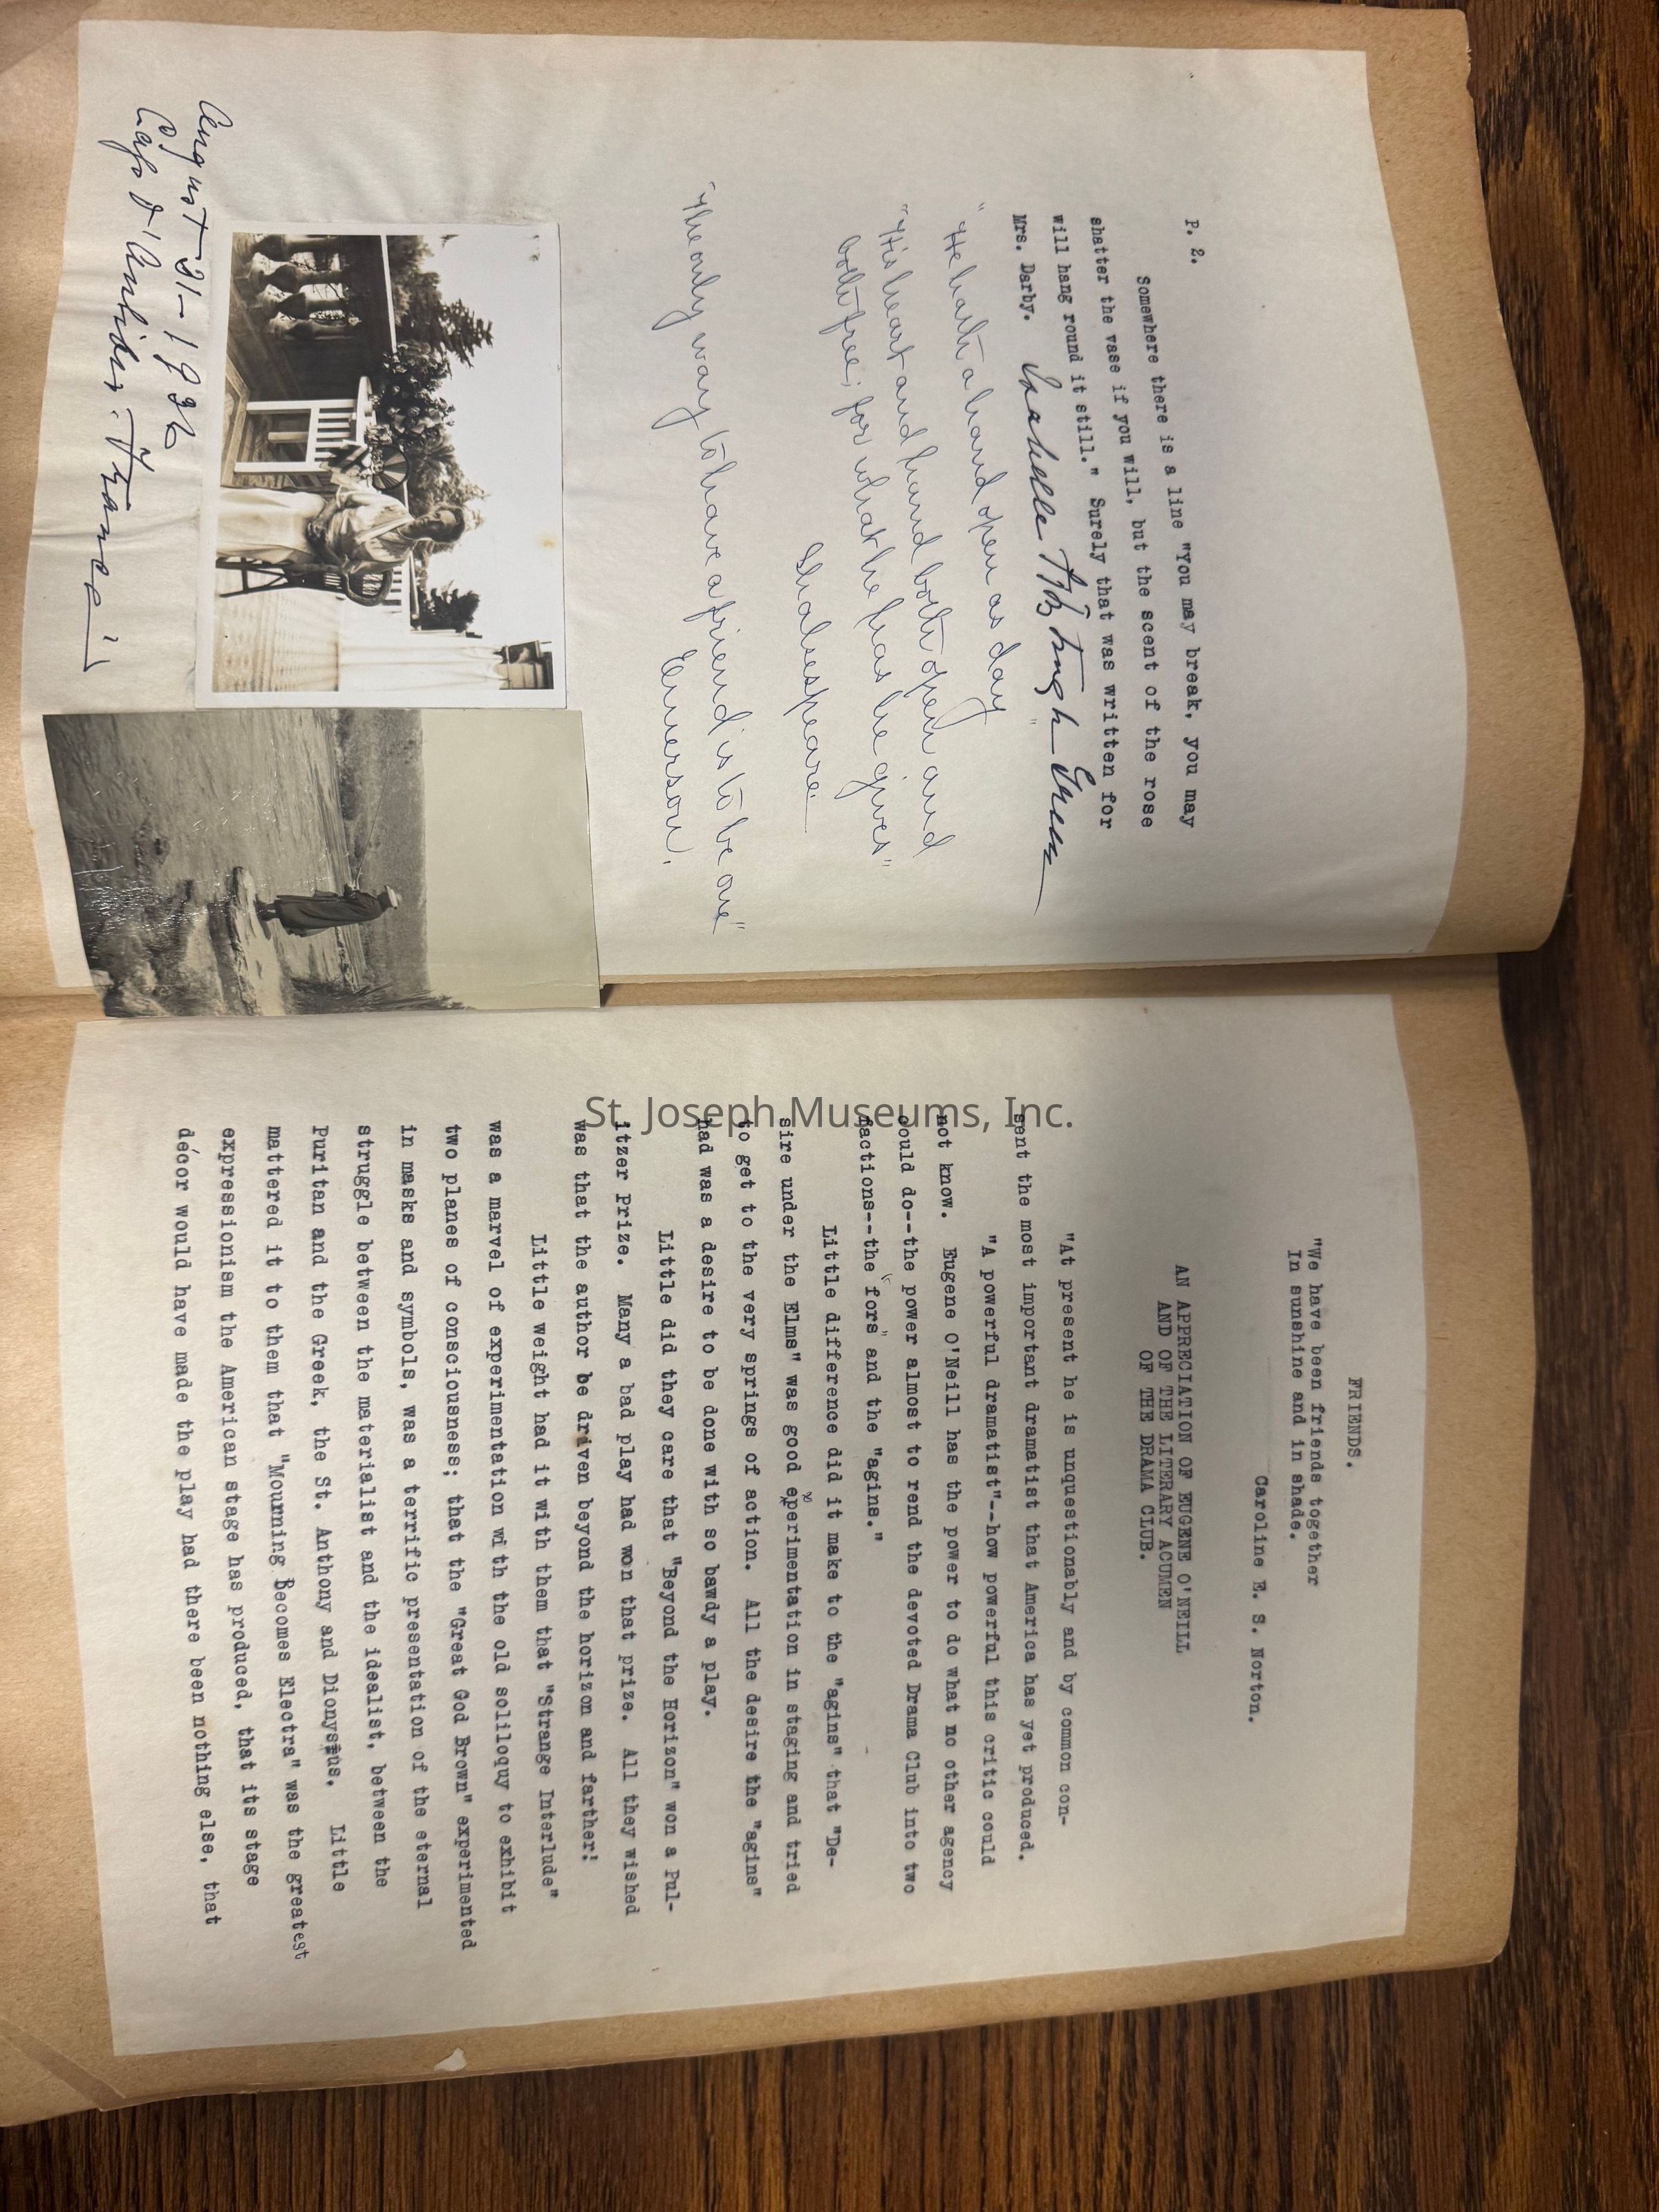 P. 2.
Somewhere there is a line "You may break, you may
shatter the vase if you will, but the scent of the rose
will hang round it still." Surely that was written for
Mrs. Darby.
"He hath a hand open as day
"His heart and hand both open and
both free; for what he has he gives"
Shakespeare
"The only way to have a friend is to be one"
Emerson.
August 31-1926
Cap d'Antibes: France
FRIENDS.
"We have been friends together
In sunshine and in shade.
Caroline E. S. Norton.
AN APPRECIATION OF EUGENE O'NEILL
AND OF THE LITERARY ACUMEN
OF THE DRAMA CLUB.
"At present he is unquestionably and by common con-
sent the most important dramatist that America has yet produced.
"A powerful dramatist"--how powerful this critic could
not know. Eugene O'Neill has the power to do what no other agency
could do--the power almost to rend the devoted Drama Club into two
factions--the "fors" and the "agins."
Little difference did it make to the "agins" that "De-
sire under the Elms" was good experimentation in staging and tried
to get to the very springs of action. All the desire the "agins"
had was a desire to be done with so bawdy a play.
Little did they care that "Beyond the Horizon" won a Pul-
itzer Prize. Many a bad play had won that prize. All they wished
was that the author be driven beyond the horizon and farther!
Little weight had it with them that "Strange Interlude"
was a marvel of experimentation with the old soliloquy to exhibit
two planes of consciousness; that the "Great God Brown" experimented
in masks and symbols, was a terrific presentation of the eternal
struggle between the materialist and the idealist, between the
Puritan and the Greek, the St. Anthony and Dionysus. Little
mattered it to them that "Mourning Becomes Electra" was the greatest
expressionism the American stage has produced, that its stage
décor would have made the play had there been nothing else, that
St. Joseph Museums, Inc.